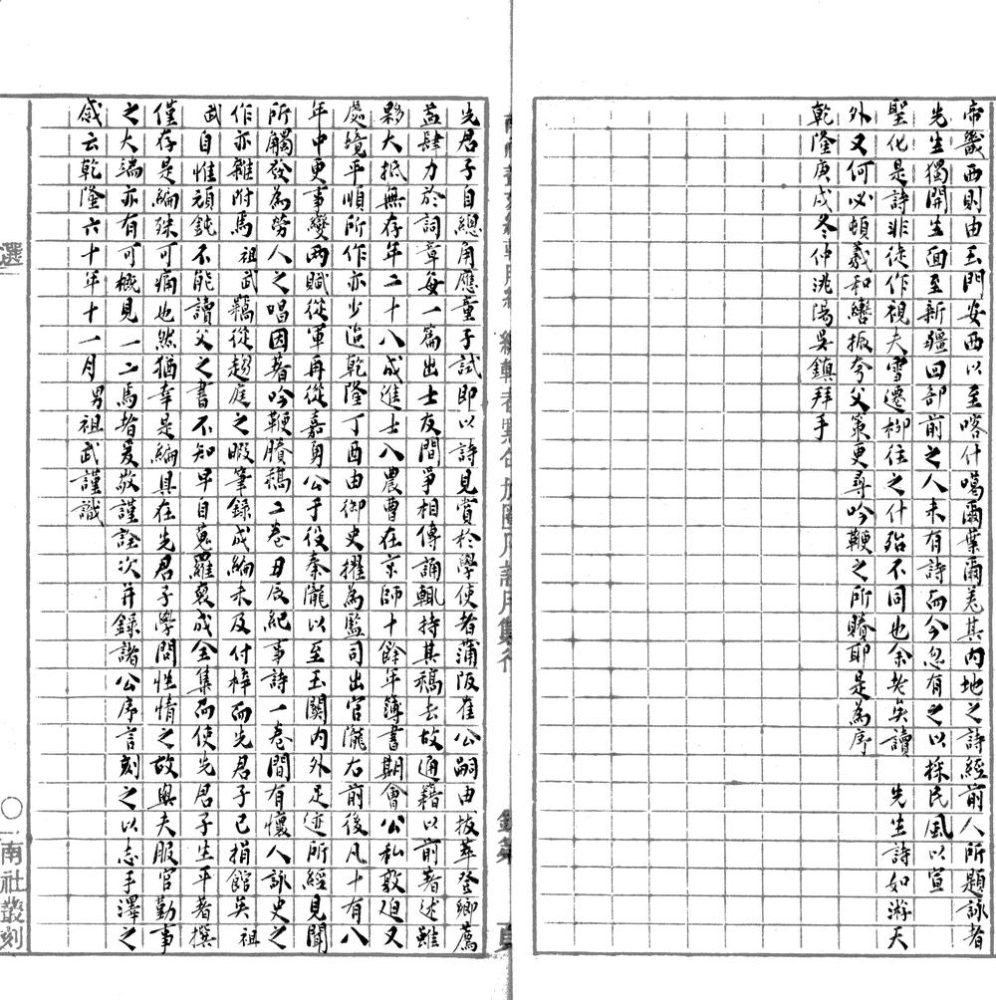 帝畿西則由玉門安西以至喀什噶爾葉爾羌其內地之詩經前人所題詠者
先生獨開生面至新疆回部前之人未有詩而今忽有之以採民風以宣
聖化是詩非徒作視夫雪遷柳往之什殆不同也余老矣讀 先生詩如游天
外又何必頓羲和轡振夸父策更尋吟鞭之所賸耶是為序
乾隆庚戌冬仲洮陽吳鎮拜手
先君子自總角應童子試即以詩見賞於學使者蒲阪崔公嗣由拔萃登鄉薦
益肆力於詞章每一篇出士友間爭相傳誦輒持其稿去故通籍以前著述雖
夥大抵無存年二十八成進士入農曹在京師十餘年簿書期會公私敦迫又
處境平順所作亦少迨乾隆丁酉由御史擢為監司出官隴右前後凡十有八
年中更事變兩賦從軍再從嘉勇公于役秦隴以至玉關內外足迹所經見聞
所觸發為勞人之唱因著吟鞭賸稿二卷丑辰紀事詩一卷間有懷人詠史之
作亦雜附焉祖武竊從趨庭之暇筆錄成編未及付梓而先君子已捐館矣祖
武自惟頑鈍不能讀父之書不知早自蒐羅裒成全集而使先君子生平著撰
僅存是編殊可痛也然猶幸是編具在先君子學問性情之故與夫服官勤事
之大端亦有可概見一二焉者爰敬謹詮次并錄諸公序言刻之以志手澤之
感云乾隆六十年十一月 男祖武謹識
選 〇 南社叢刻